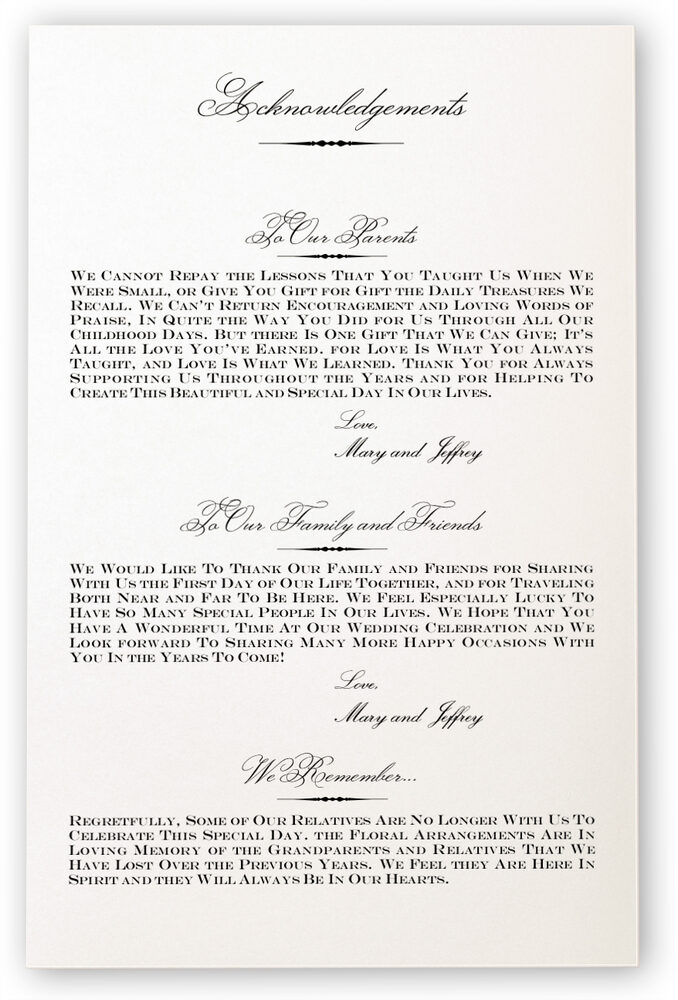 Acknowledgements
To Our Parents
We Cannot Repay the Lessons That You Taught Us When We
Were Small, or Give You Gift for Gift the Daily Treasures We
Recall. We Can't Return Encouragement and Loving Words of
Praise, In Quite the Way You Did for Us Through All Our
Childhood Days. But there Is One Gift That We Can Give; It's
All the Love You've Earned. for Love Is What You Always
Taught, and Love Is What We Learned. Thank You for Always
Supporting Us Throughout the Years and for Helping To
Create This Beautiful and Special Day In Our Lives.
Love,
Mary and Jeffrey
To Our Family and Friends
We Would Like To Thank Our Family and Friends for Sharing
With Us the First Day of Our Life Together, and for Traveling
Both Near and Far To Be Here. We Feel Especially Lucky To
Have So Many Special People In Our Lives. We Hope That You
Have A Wonderful Time At Our Wedding Celebration and We
Look forward To Sharing Many More Happy Occasions With
You In the Years To Come!
Love,
Mary and Jeffrey
We Remember...
Regretfully, Some of Our Relatives Are No Longer With Us To
Celebrate This Special Day. the Floral Arrangements Are In
Loving Memory of the Grandparents and Relatives That We
Have Lost Over the Previous Years. We Feel they Are Here In
Spirit and they Will Always Be In Our Hearts.